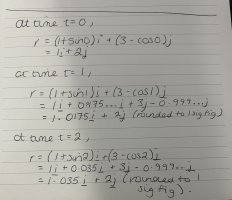 At time t=0,
r = (1+sin0)i + (3-cos0)j
= 1i + 2j
at time t=1,
r = (1+sin1)i + (3-cos1)j
= 1i + 0.0175...i + 3j - 0.999...j
= 1.0175i + 2j (rounded to 1 sig fig)
at time t=2,
r = (1+sin2)i + (3-cos2)j
= 1i + 0.035i + 3j - 0.999...j
= 1.035i + 2j (rounded to 1
sig fig).